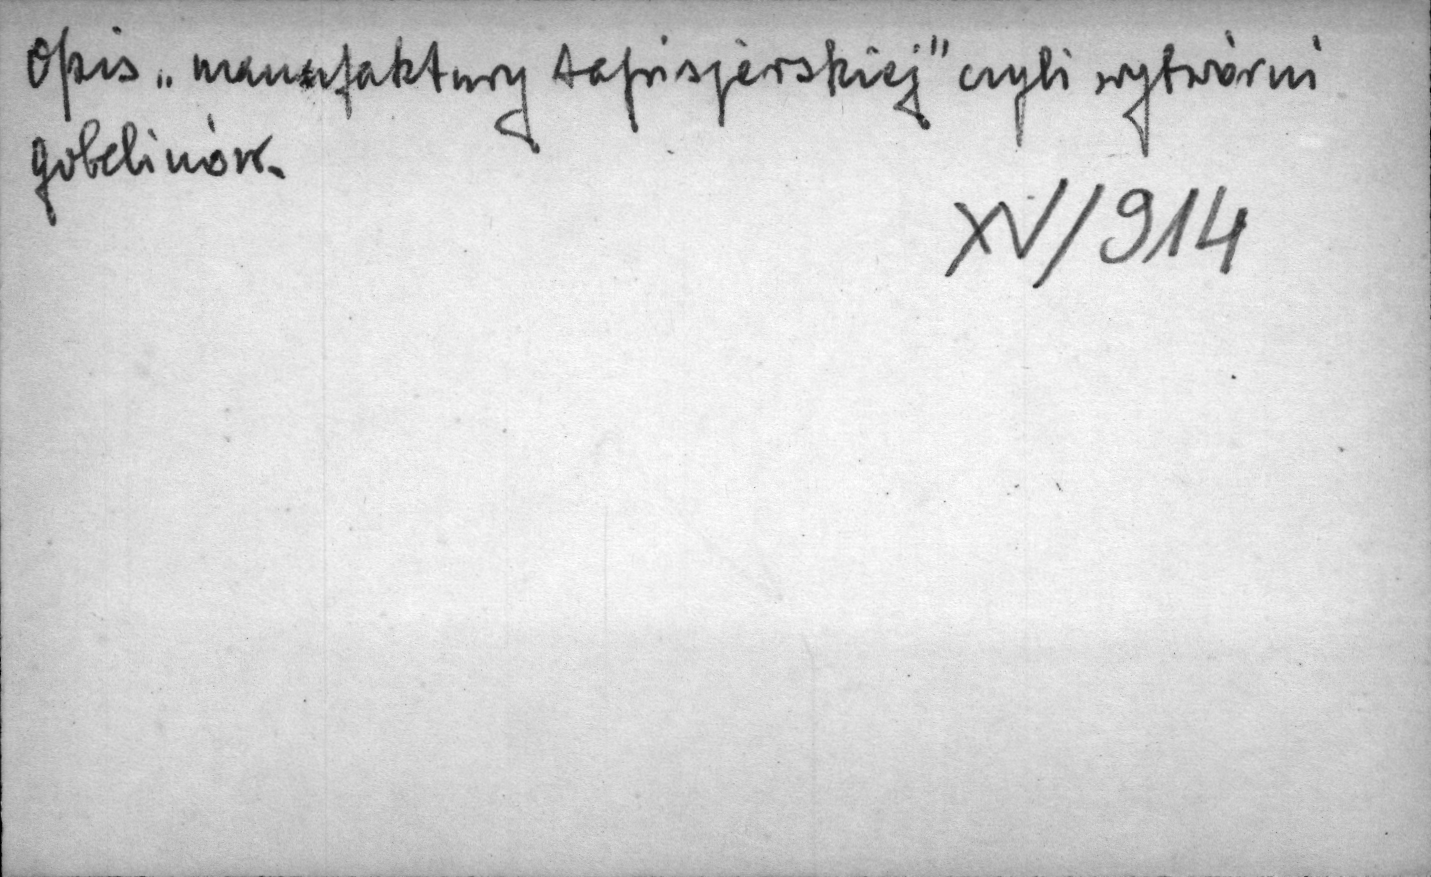 Opis „manufaktury tapisjerskiej" czyli wytwórni
gobelinów.
XV/914